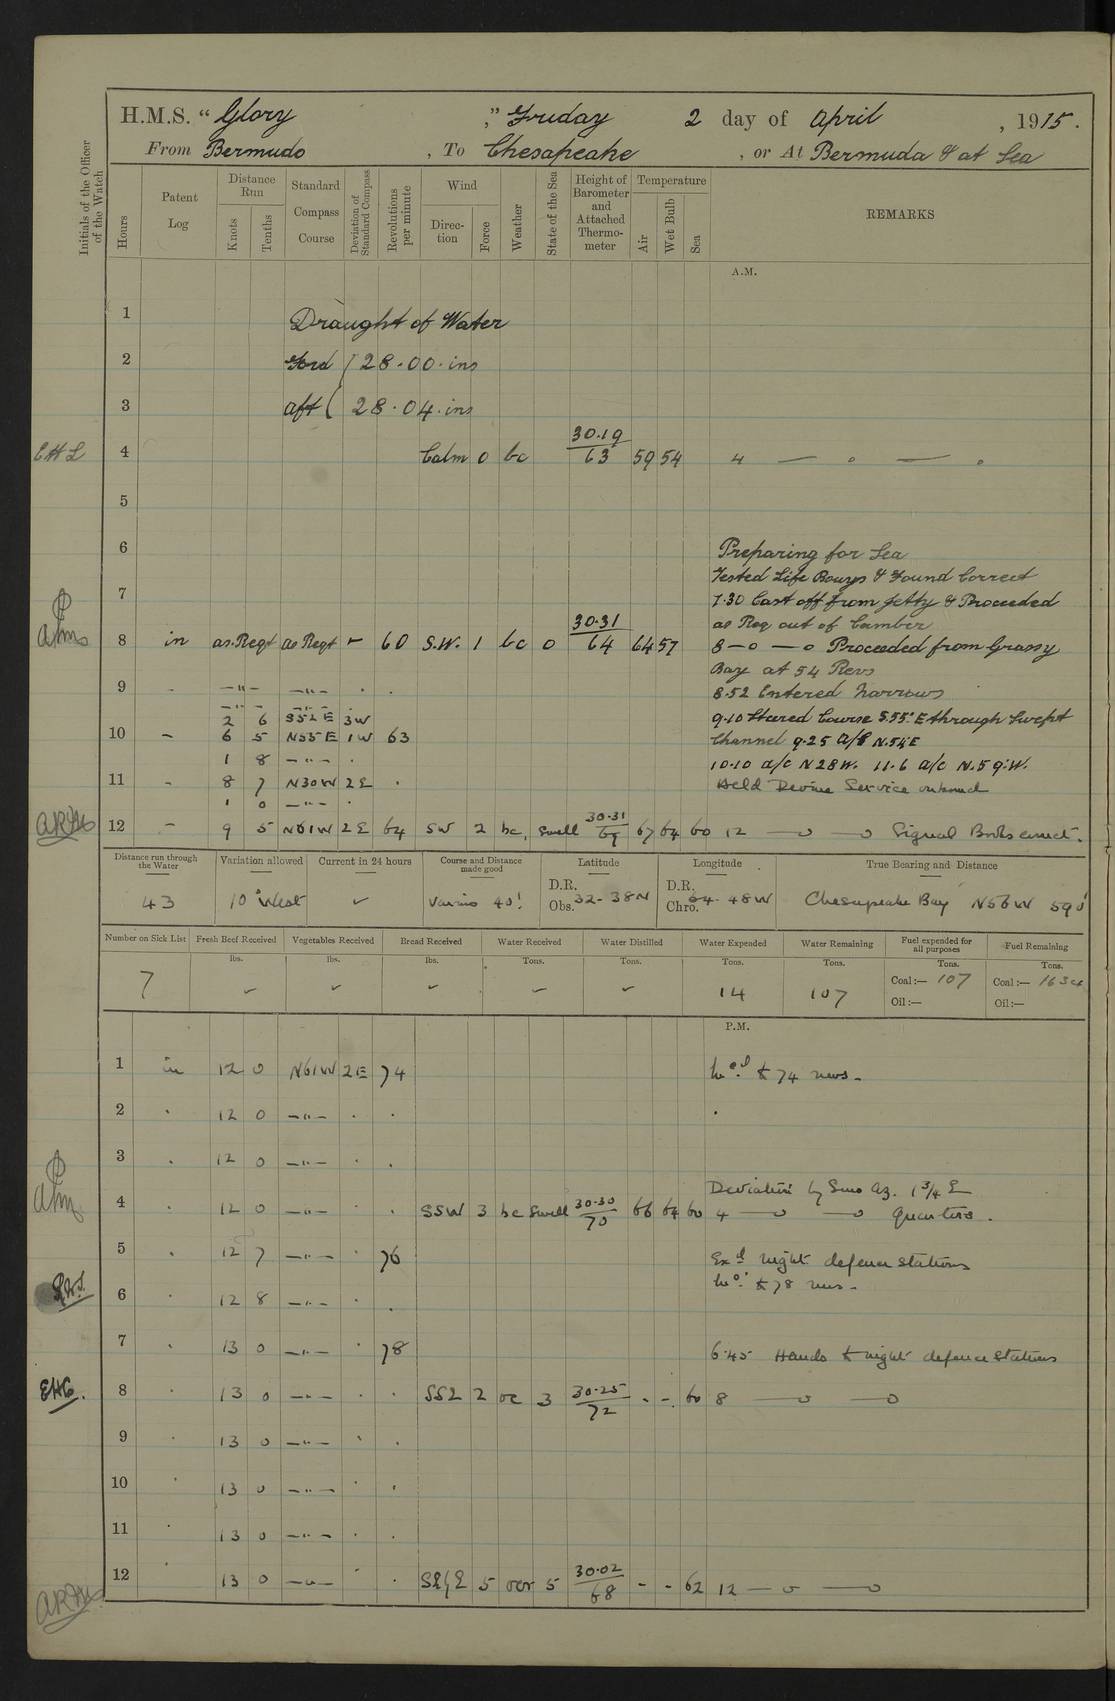 H.M.S. “ Glory ,” Friday 2 day of April , 1915.
From Bermuda , To Chesapeake , or At Bermuda & at Sea
Initials of the Officer of the Watch
Hours Patent Log Distance Run Knots Tenths Standard Compass Course Deviation of Standard Compass Revolutions per minute Wind Direction Force Weather State of the Sea Height of Barometer and Attached Thermometer Temperature Air Wet Bulb Sea REMARKS
A.M.
1 Draught of Water
2 Ford 28.00.ins
3 aft 28.04.ins
30.19
EHL 4 Calm 0 bc 63 59 54 4 — o — o
5
6 Preparing for Sea
Tested Life Bouys & Found Correct
7 7.30 Cast off from Jetty & Proceeded
30.31 as Req out of Camber
8 in as.Reqt as Reqt 60 S.W. 1 bc 0 64 64 57 8 — o — o Proceeded from Grassy
Bay at 54 Revs
9 - —"— —"— . . 8.52 Entered Narrows
—"— —"— .
2 6 S52E 3W 9.10 Steered Course S.55°E through Swept
10 - 6 5 N55E 1W 63 Channel 9.25 a/c N.54E
1 8 —"— . 10.10 a/c N28W. 11.6 a/c N.59.W.
11 - 8 7 N30W 2E . Held Devine Service onboard
1 0 —"— .
30.31
12 - 9 5 N61W 2E 64 SW 2 bc, Swell 69 67 64 60 12 — o — o Signal Books correct.
Distance run through the Water Variation allowed Current in 24 hours Course and Distance made good Latitude Longitude True Bearing and Distance
D.R. D.R.
43 10° West ✓ Various 40' Obs. 32-38N Chro. 64-48W Chesapeake Bay N56W 590'
Number on Sick List Fresh Beef Received Vegetables Received Bread Received Water Received Water Distilled Water Expended Water Remaining Fuel expended for all purposes Fuel Remaining
lbs. lbs. lbs. Tons. Tons. Tons. Tons. Tons. Tons.
7 ✓ ✓ ✓ ✓ ✓ 14 107 Coal:— 107 Coal:— 1634
Oil:— Oil:—
P.M.
1 in 12 0 N61W 2E 74 Incd to 74 revs.
2 . 12 0 —"— . . .
3 . 12 0 —"— . .
Deviation by Suns Az. 1 3/4 E
4 . 12 0 —"— . . SSW 3 bc Swell 30.30 70 66 64 60 4 — o — o Quarters.
5 . 12 7 —"— . 76 Exd night defence stations
Incd to 78 revs.
6 . 12 8 —"— . .
7 . 13 0 —"— . 78 6.45 Hands to night defence stations
EHG. 8 . 13 0 —"— . . SSE 2 oc 3 30.25 72 - - 60 8 — o — o
9 . 13 0 —"— . .
10 . 13 0 —"— . .
11 . 13 0 —"— . .
12 . 13 0 —"— . . SE/E 5 ocr 5 30.02 68 - - 62 12 — o — o